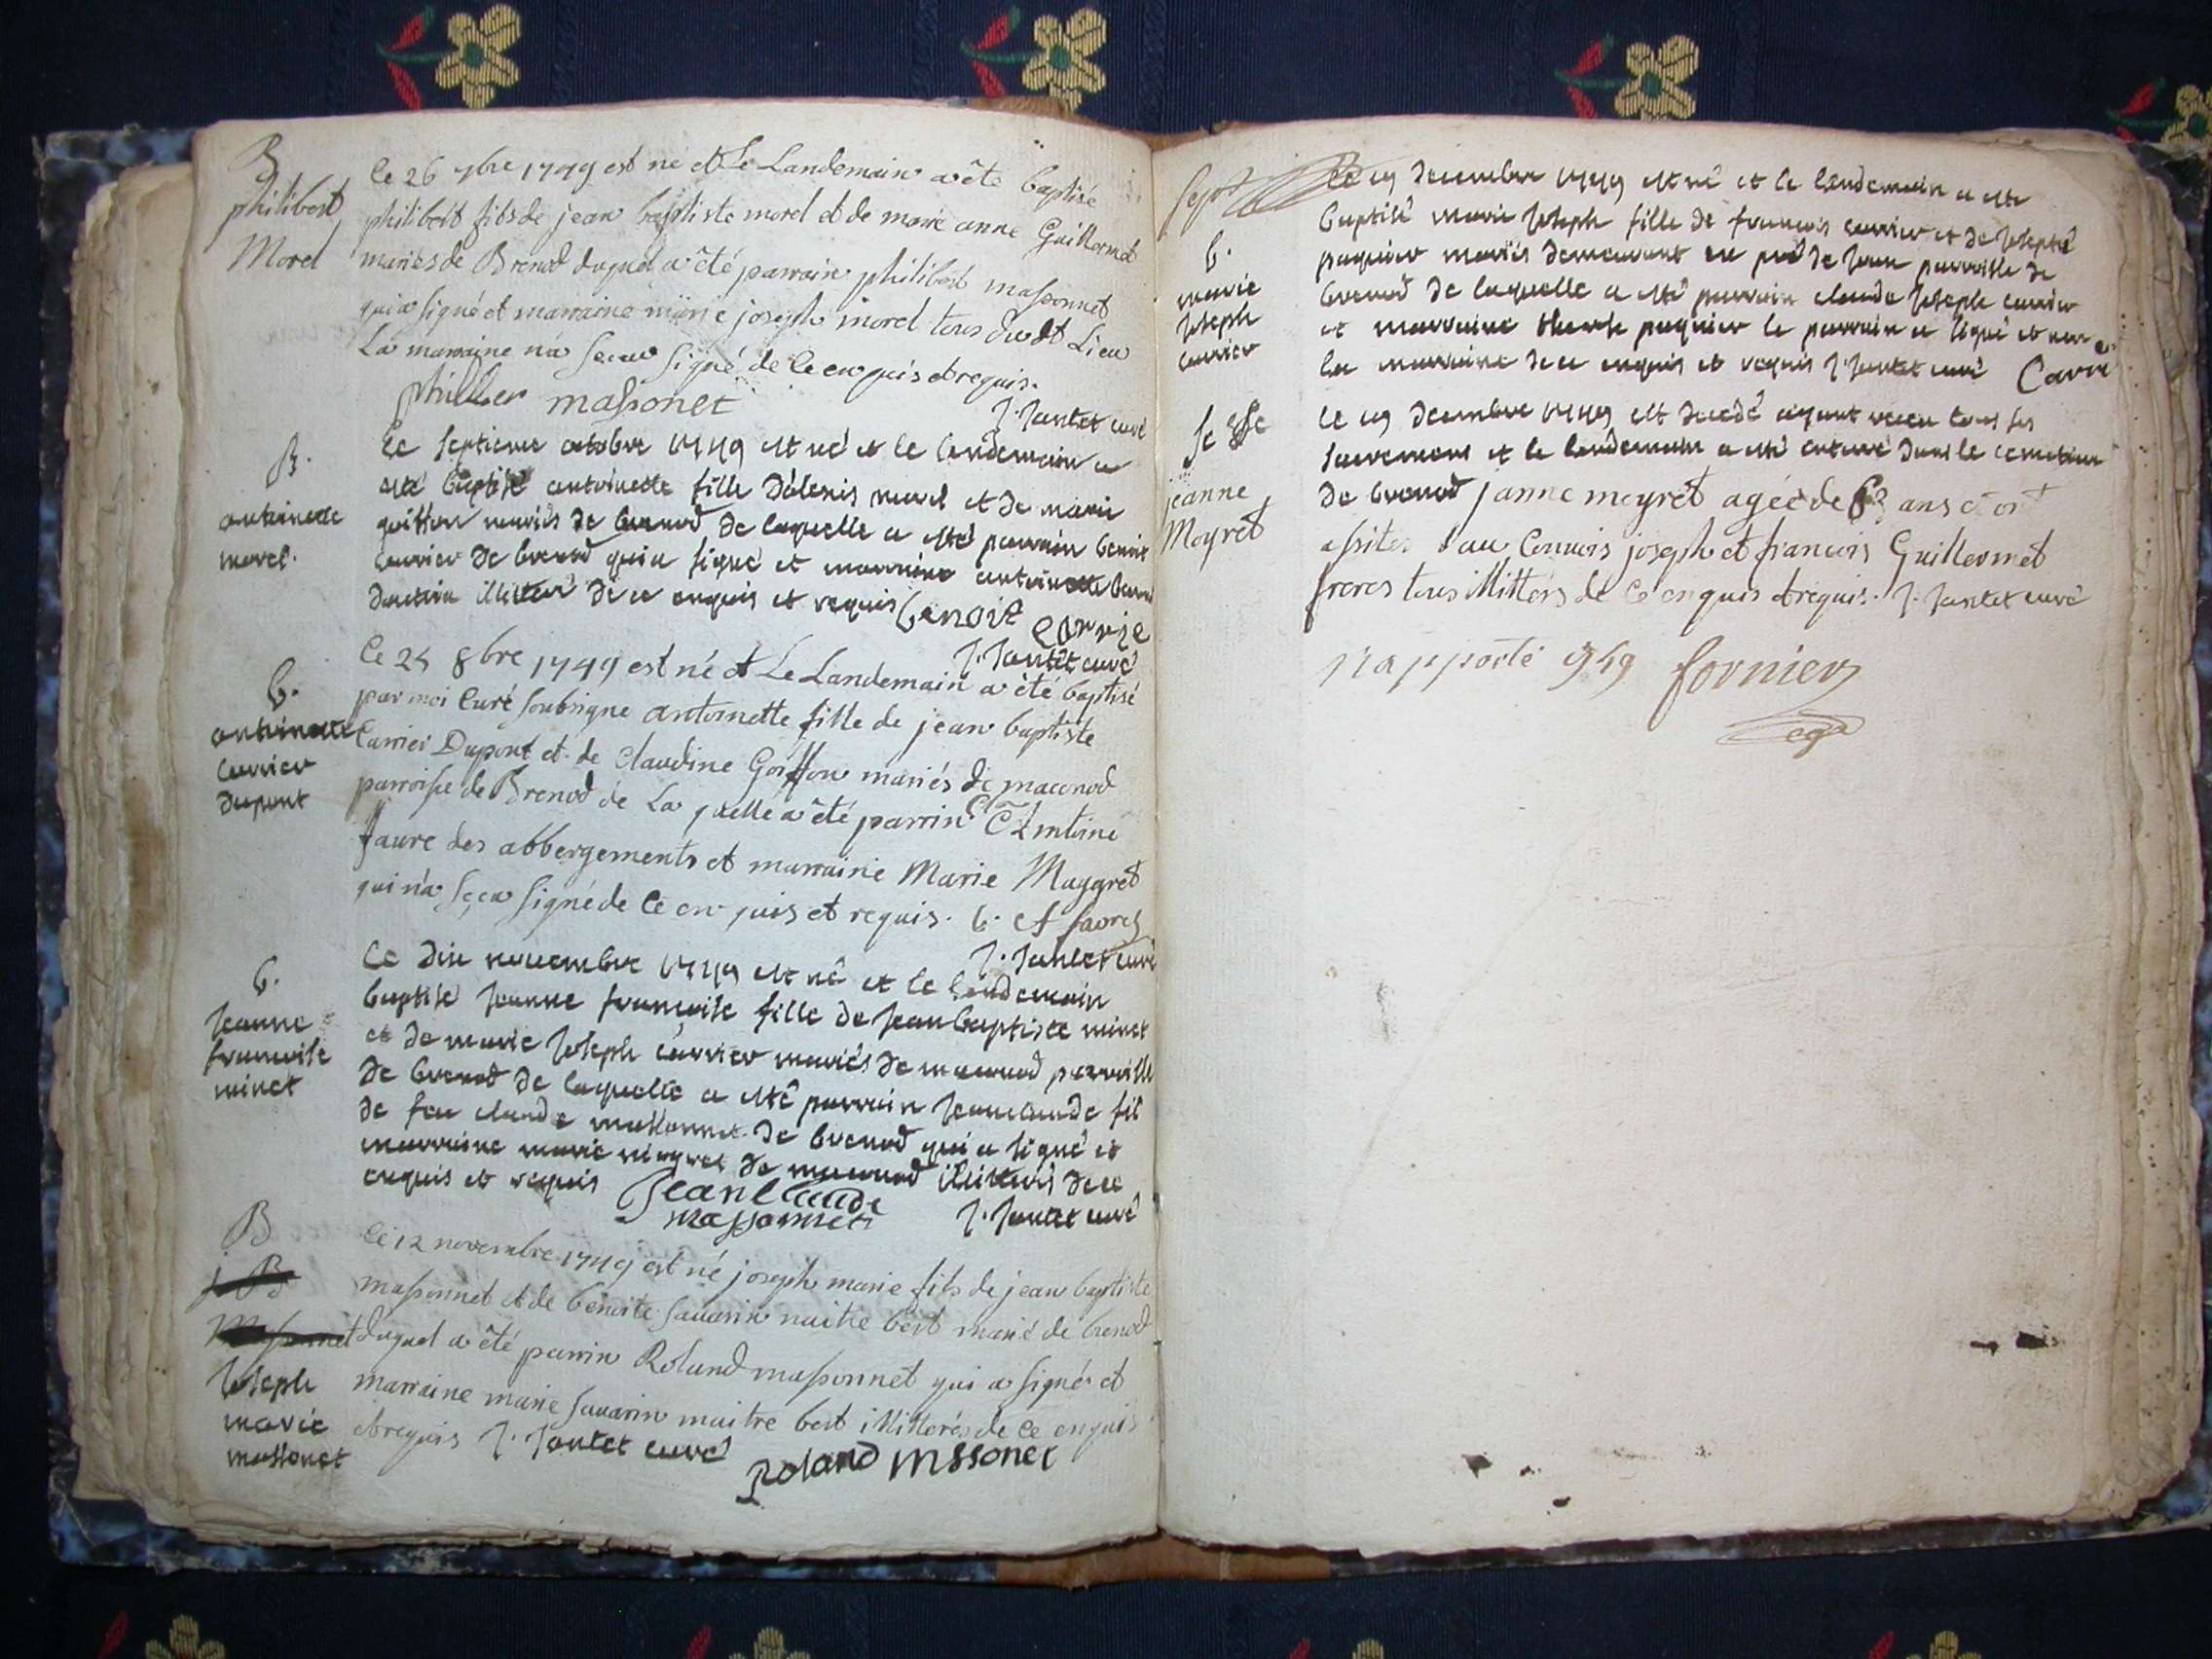 B
philibert
Morel
Le 26 7bre 1749 est né et Le Landemain a êté baptisé
philibert fils de jean baptiste morel et de marie anne Guillermet
mariés de Brenod duquel a êté parrain philibert massonnet
qui a signé et marraine marie joseph morel tous dudt Lieu
La marraine n'a sceu signé de ce enquis et requis.
philber massonet
J. Jantet curé
B.
antoinette
morel.
Le septieme octobre 1749 est né et le lendemain a
esté baptisé antoinette fille d'alexis morel et de marie
goiffon mariés de brenod de laquelle a esté parrain benoit
carrier de brenod qui a signé et marraine antoinette
illitteré de ce enquis et requis benoit carrie
J. Jantet curé
b.
antoinette
carrier
dupont
Le 25 8bre 1749 est né et Le Landemain a êté baptisé
par moi Curé soubsigne antoinette fille de jean baptiste
Carrier Dupont et de Claudine Goiffon mariés de maconod
parroisse de Brenod de La quelle a êté parrin
faure des abbergements et marraine Marie Maygret
qui n'a sçeu signé de ce enquis et requis.
J. Jantet curé
b.
Jeanne
francoise
minet
Le dix novembre 1749 est né et le lendemain
baptisé Jeanne françoise fille de Jean baptiste minet
et de marie Joseph carrier mariés de maconod parroisse
de brenod de laquelle a esté parrain Jean claude fil
de feu claude massonnet de brenod qui a signé et
marraine marie de maconod illitterés de ce
enquis et requis Jean Claude
massonnet
J. Jantet curé
B
Joseph
marie
massonet
Le 12 novembre 1749 est né joseph marie fils de jean baptiste
massonnet et de benoite savarin maitre bert marié de brenod
duquel a êté parrin Roland massonnet qui a signé et
marraine marie savarin maitre bert illitterés de ce enquis
et requis J. Jantet curé
Roland mssonet
sept
b.
marie
Joseph
carrier
Le 19 decembre 1749 est né et le lendemain a esté
baptisé marie Joseph fille de francois carrier et de Josepté
paquier mariés demeurant en pré de Joux parroisse de
brenod de laquelle a esté parrain claude Joseph carrier
et marraine therese paquier le parrain a signé et non
la marraine de ce enquis et requis J. Jantet curé Carri
jeanne
Meyret
Le 19 decembre 1749 est decedé ayant receu tous ses
sacremens et le lendemain a esté enterré dans le cemetiere
de brenod janne meyret agéé de ans et ont
assites au Convois joseph et francois Guillermet
freres tous illitters de ce enquis et requis. J. Jantet curé
rapporté
fornier